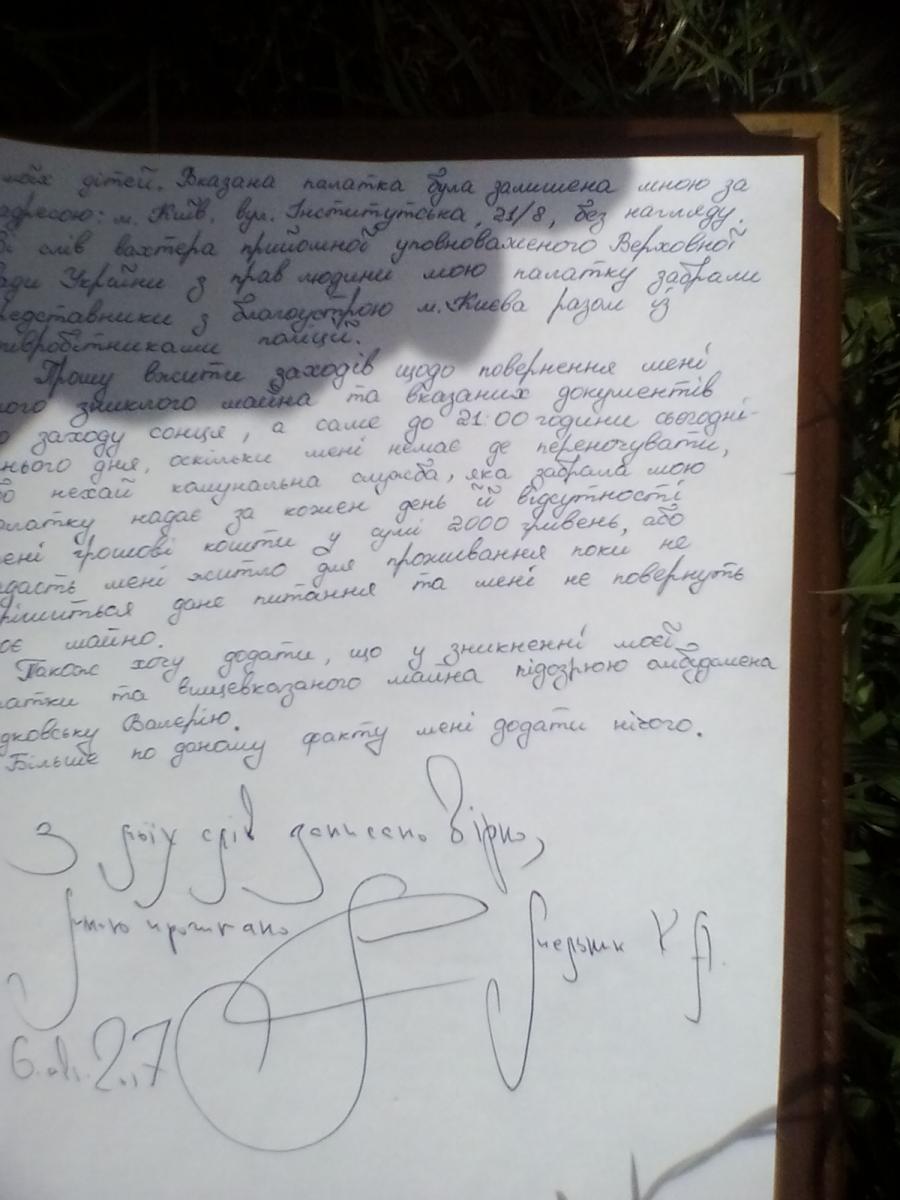 моїх дітей. Вказана палатка була залишена мною за
адресою: м. Київ. вул. Інститутська, 21/8, без нагляду.
зі слів вахтера прийомної уповноваженого Верховної
ади України з прав людини мою палатку забрали
редставники з благоустрою м. Києва разом із
півробітниками поліції.
Прошу вжити заходів щодо повернення мені
мого зниклого майна та вказаних документів
о заходу сонця, а саме до 21:00 години сьогодні-
нього дня, оскільки мені немає де переночувати,
бо нехай комунальна служба, яка забрала мою
алатку надає за кожен день її відсутності
ені грошові кошти у сумі 2000 гривень, або
адасть мені житло для проживання поки не
рішиться дане питання та мені не повернуть
оє майно.
Також хочу додати, що у зникненні моєї
латки та вищевказаного майна підозрюю омбудсмена
дковську Валерію.
Більше по даному факту мені додати нічого.
З моїх слів записано вірно,
мною прочитано